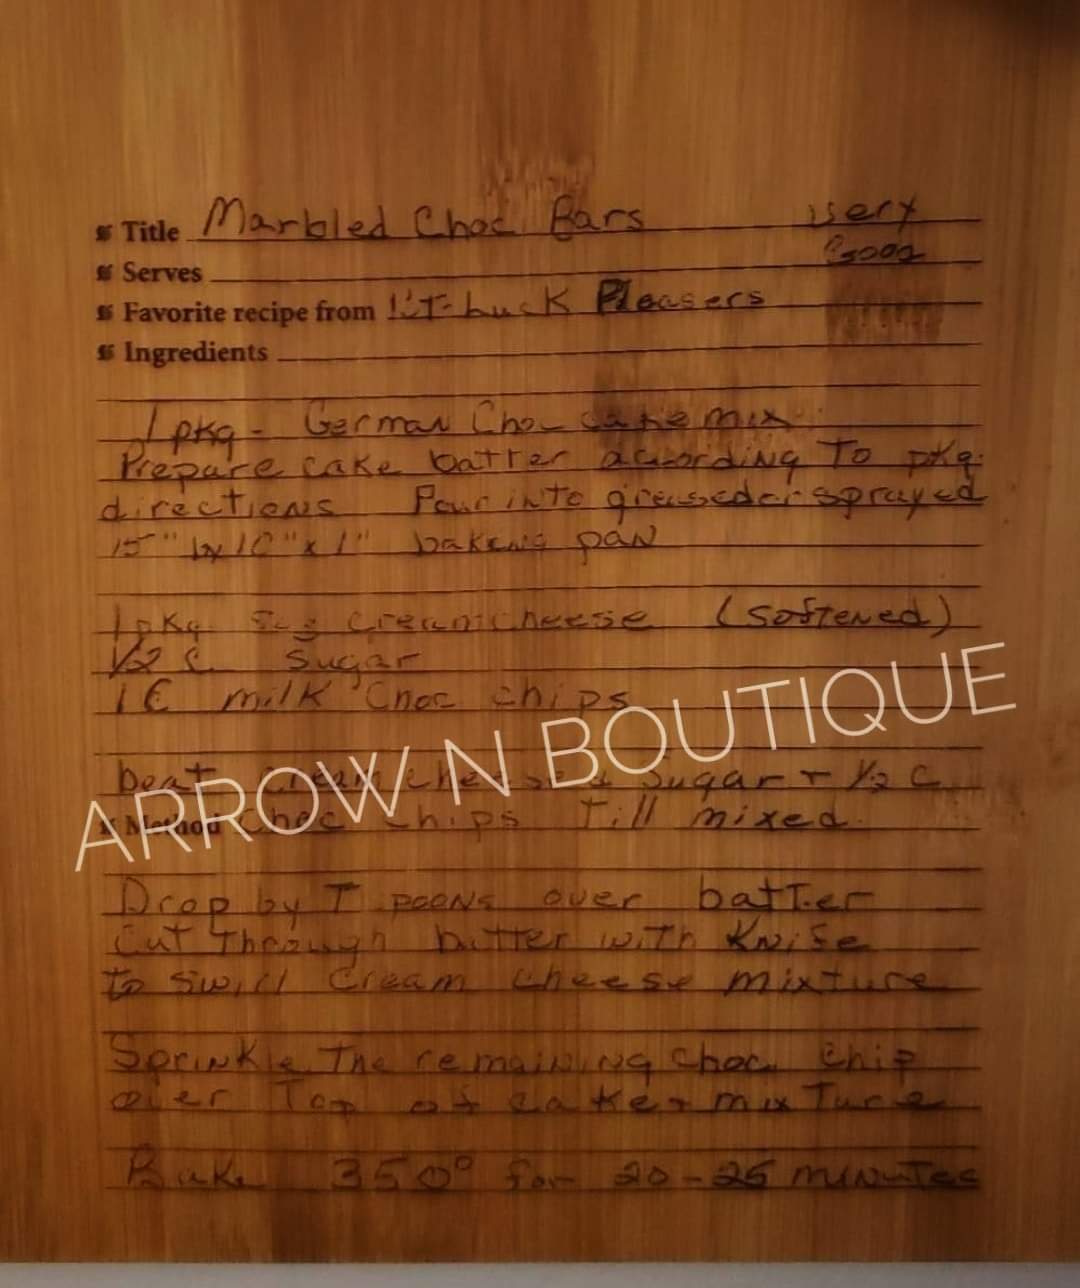 Title Marbled Choc Bars Very
Serves Good
Favorite recipe from Pleasers
Ingredients
1 pkg - German Choc cake mix
Prepare cake batter according To pkg.
directions Pour into greased or sprayed
15" by 10" x 1" baking pan
1 pkg creamcheese (softened)
1/2 c. Sugar
1 C milk Choc chips
beat cream cheese + Sugar + 1/2 C
Method Choc chips Till mixed.
ARROW N BOUTIQUE
Drop by over batter
Cut Through batter with Knife
to swirl Cream cheese mixture
Sprinkle The remaining choc chip
over Top of cake + mixture
Bake 350° for 20-25 minutes